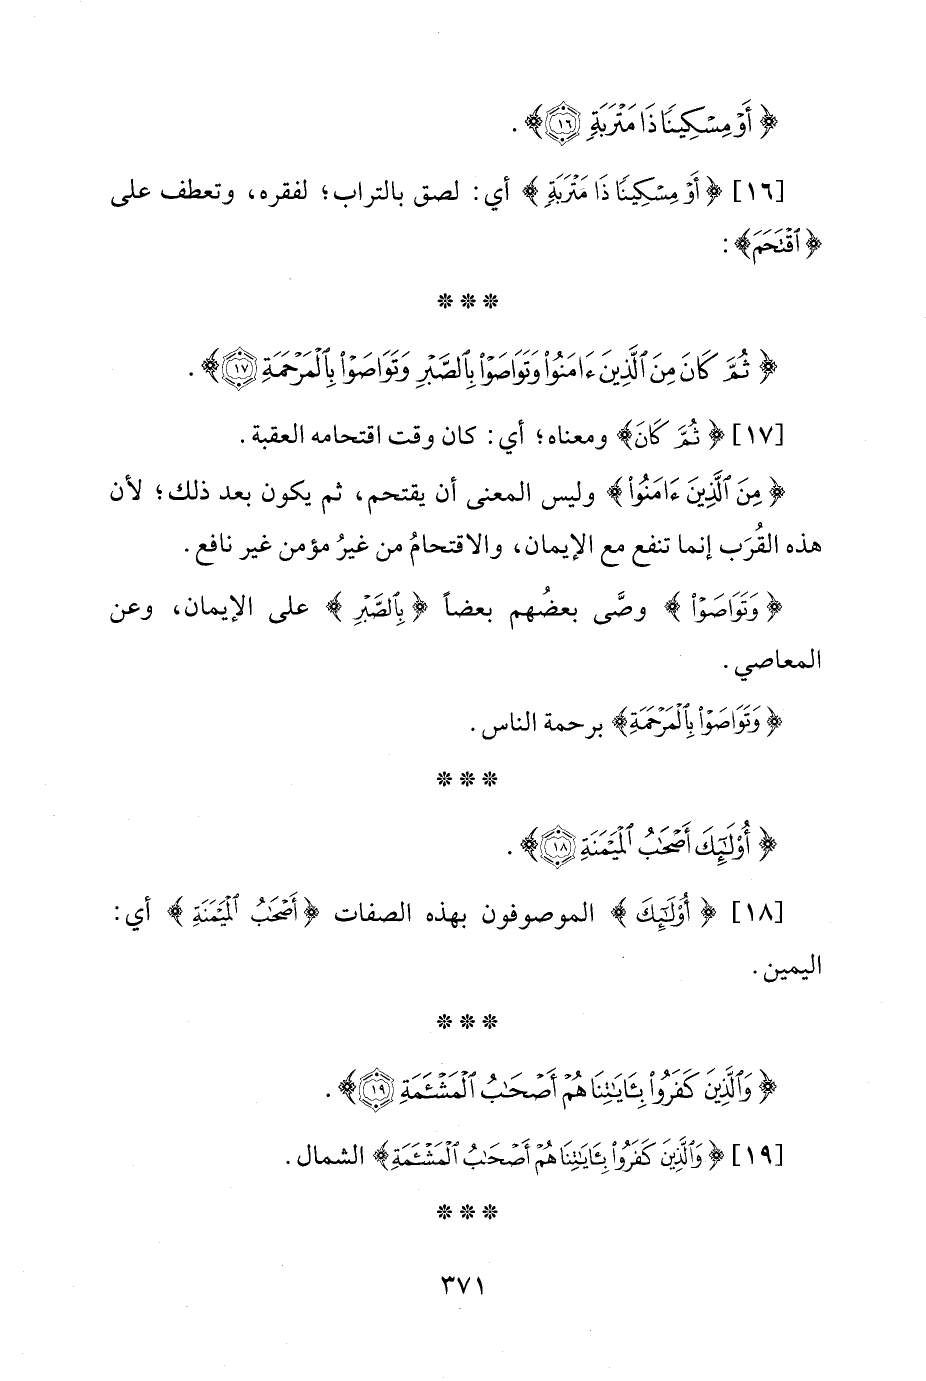 ﴿أَوْ مِسْكِينًا ذَا مَتْرَبَةٍ ١٦﴾.
[١٦] ﴿أَوْ مِسْكِينًا ذَا مَتْرَبَةٍ﴾ أي: لصق بالتراب؛ لفقره، وتعطف على
﴿ٱقْتَحَمَ﴾:
* * *
﴿ثُمَّ كَانَ مِنَ ٱلَّذِينَ ءَامَنُواْ وَتَوَاصَوْاْ بِٱلصَّبْرِ وَتَوَاصَوْاْ بِٱلْمَرْحَمَةِ ١٧﴾.
[١٧] ﴿ثُمَّ كَانَ﴾ ومعناه؛ أي: كان وقت اقتحامه العقبة.
﴿مِنَ ٱلَّذِينَ ءَامَنُواْ﴾ وليس المعنى أن يقتحم، ثم يكون بعد ذلك؛ لأن
هذه القُرَب إنما تنفع مع الإيمان، والاقتحامُ من غيرُ مؤمن غير نافع.
﴿وَتَوَاصَوْاْ﴾ وصَّى بعضُهم بعضاً ﴿بِٱلصَّبْرِ﴾ على الإيمان، وعن
المعاصي.
﴿وَتَوَاصَوْاْ بِٱلْمَرْحَمَةِ﴾ برحمة الناس.
* * *
﴿أُوْلَٰٓئِكَ أَصْحَٰبُ ٱلْمَيْمَنَةِ ١٨﴾.
[١٨] ﴿أُوْلَٰٓئِكَ﴾ الموصوفون بهذه الصفات ﴿أَصْحَٰبُ ٱلْمَيْمَنَةِ﴾ أي:
اليمين.
* * *
﴿وَٱلَّذِينَ كَفَرُواْ بِـَٔايَٰتِنَا هُمْ أَصْحَٰبُ ٱلْمَشْـَٔمَةِ ١٩﴾.
[١٩] ﴿وَٱلَّذِينَ كَفَرُواْ بِـَٔايَٰتِنَا هُمْ أَصْحَٰبُ ٱلْمَشْـَٔمَةِ﴾ الشمال.
* * *
٣٧١